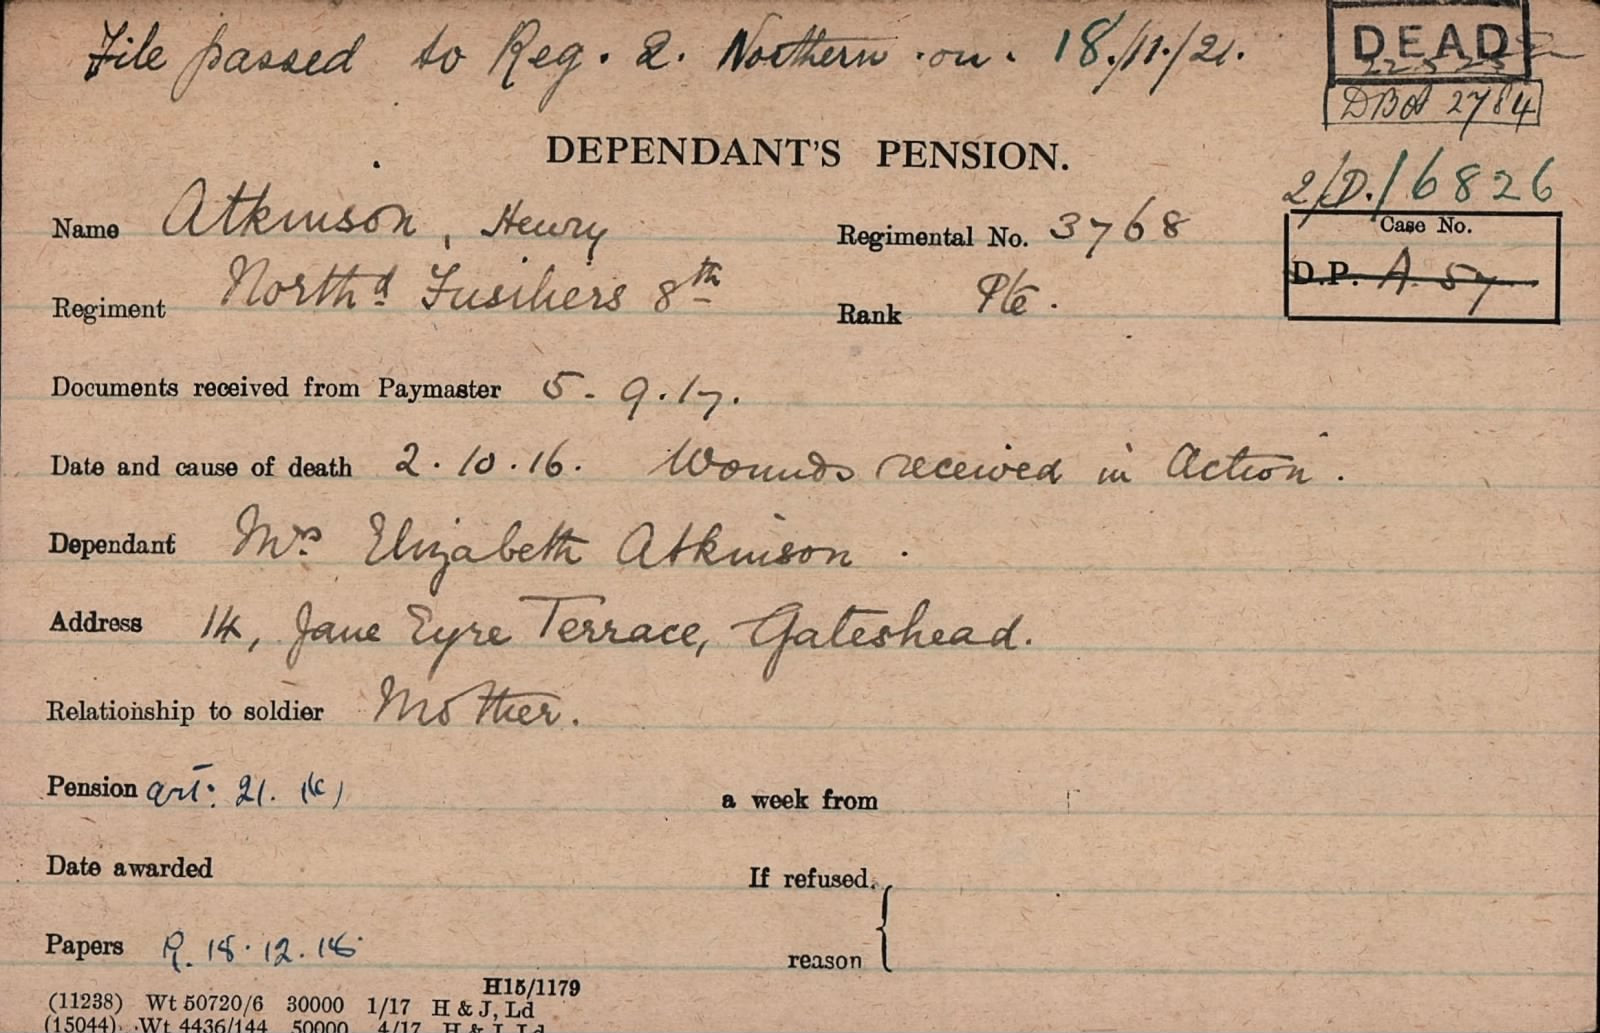 File passed to Reg. 2. Northern on. 18/11/21.
DEAD
22 5 23
DBot 2784
DEPENDANT'S PENSION.
2/D./6826
Name Atkinson, Henry
Regimental No. 3768
Case No.
D.P. A. 57
Regiment North'd Fusiliers 8th
Rank Pte.
Documents received from Paymaster 5-9.17.
Date and cause of death 2.10.16. Wounds received in Action.
Dependant Mrs Elizabeth Atkinson.
Address 14, Jane Eyre Terrace, Gateshead.
Relationship to soldier Mother.
Pension art: 21. (c)
a week from
Date awarded
If refused.
Papers R. 18.12.18
reason
H15/1179
(11238) Wt 50720/6 30000 1/17 H & J, Ld
(15044) Wt 4436/144 50000 4/17 H & J, Ld